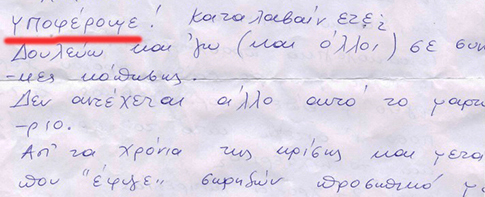 υποφέρουμε! Καταλαβαίνετε;
Δουλεύω και 'γω (και άλλοι) σε συν
-κες κόπωσης.
Δεν αντέχεται άλλο αυτό το μαρτ
-ριο.
Απ' τα χρόνια της κρίσης και μετά
που "έφυγε" σωρηδόν προσωπικό